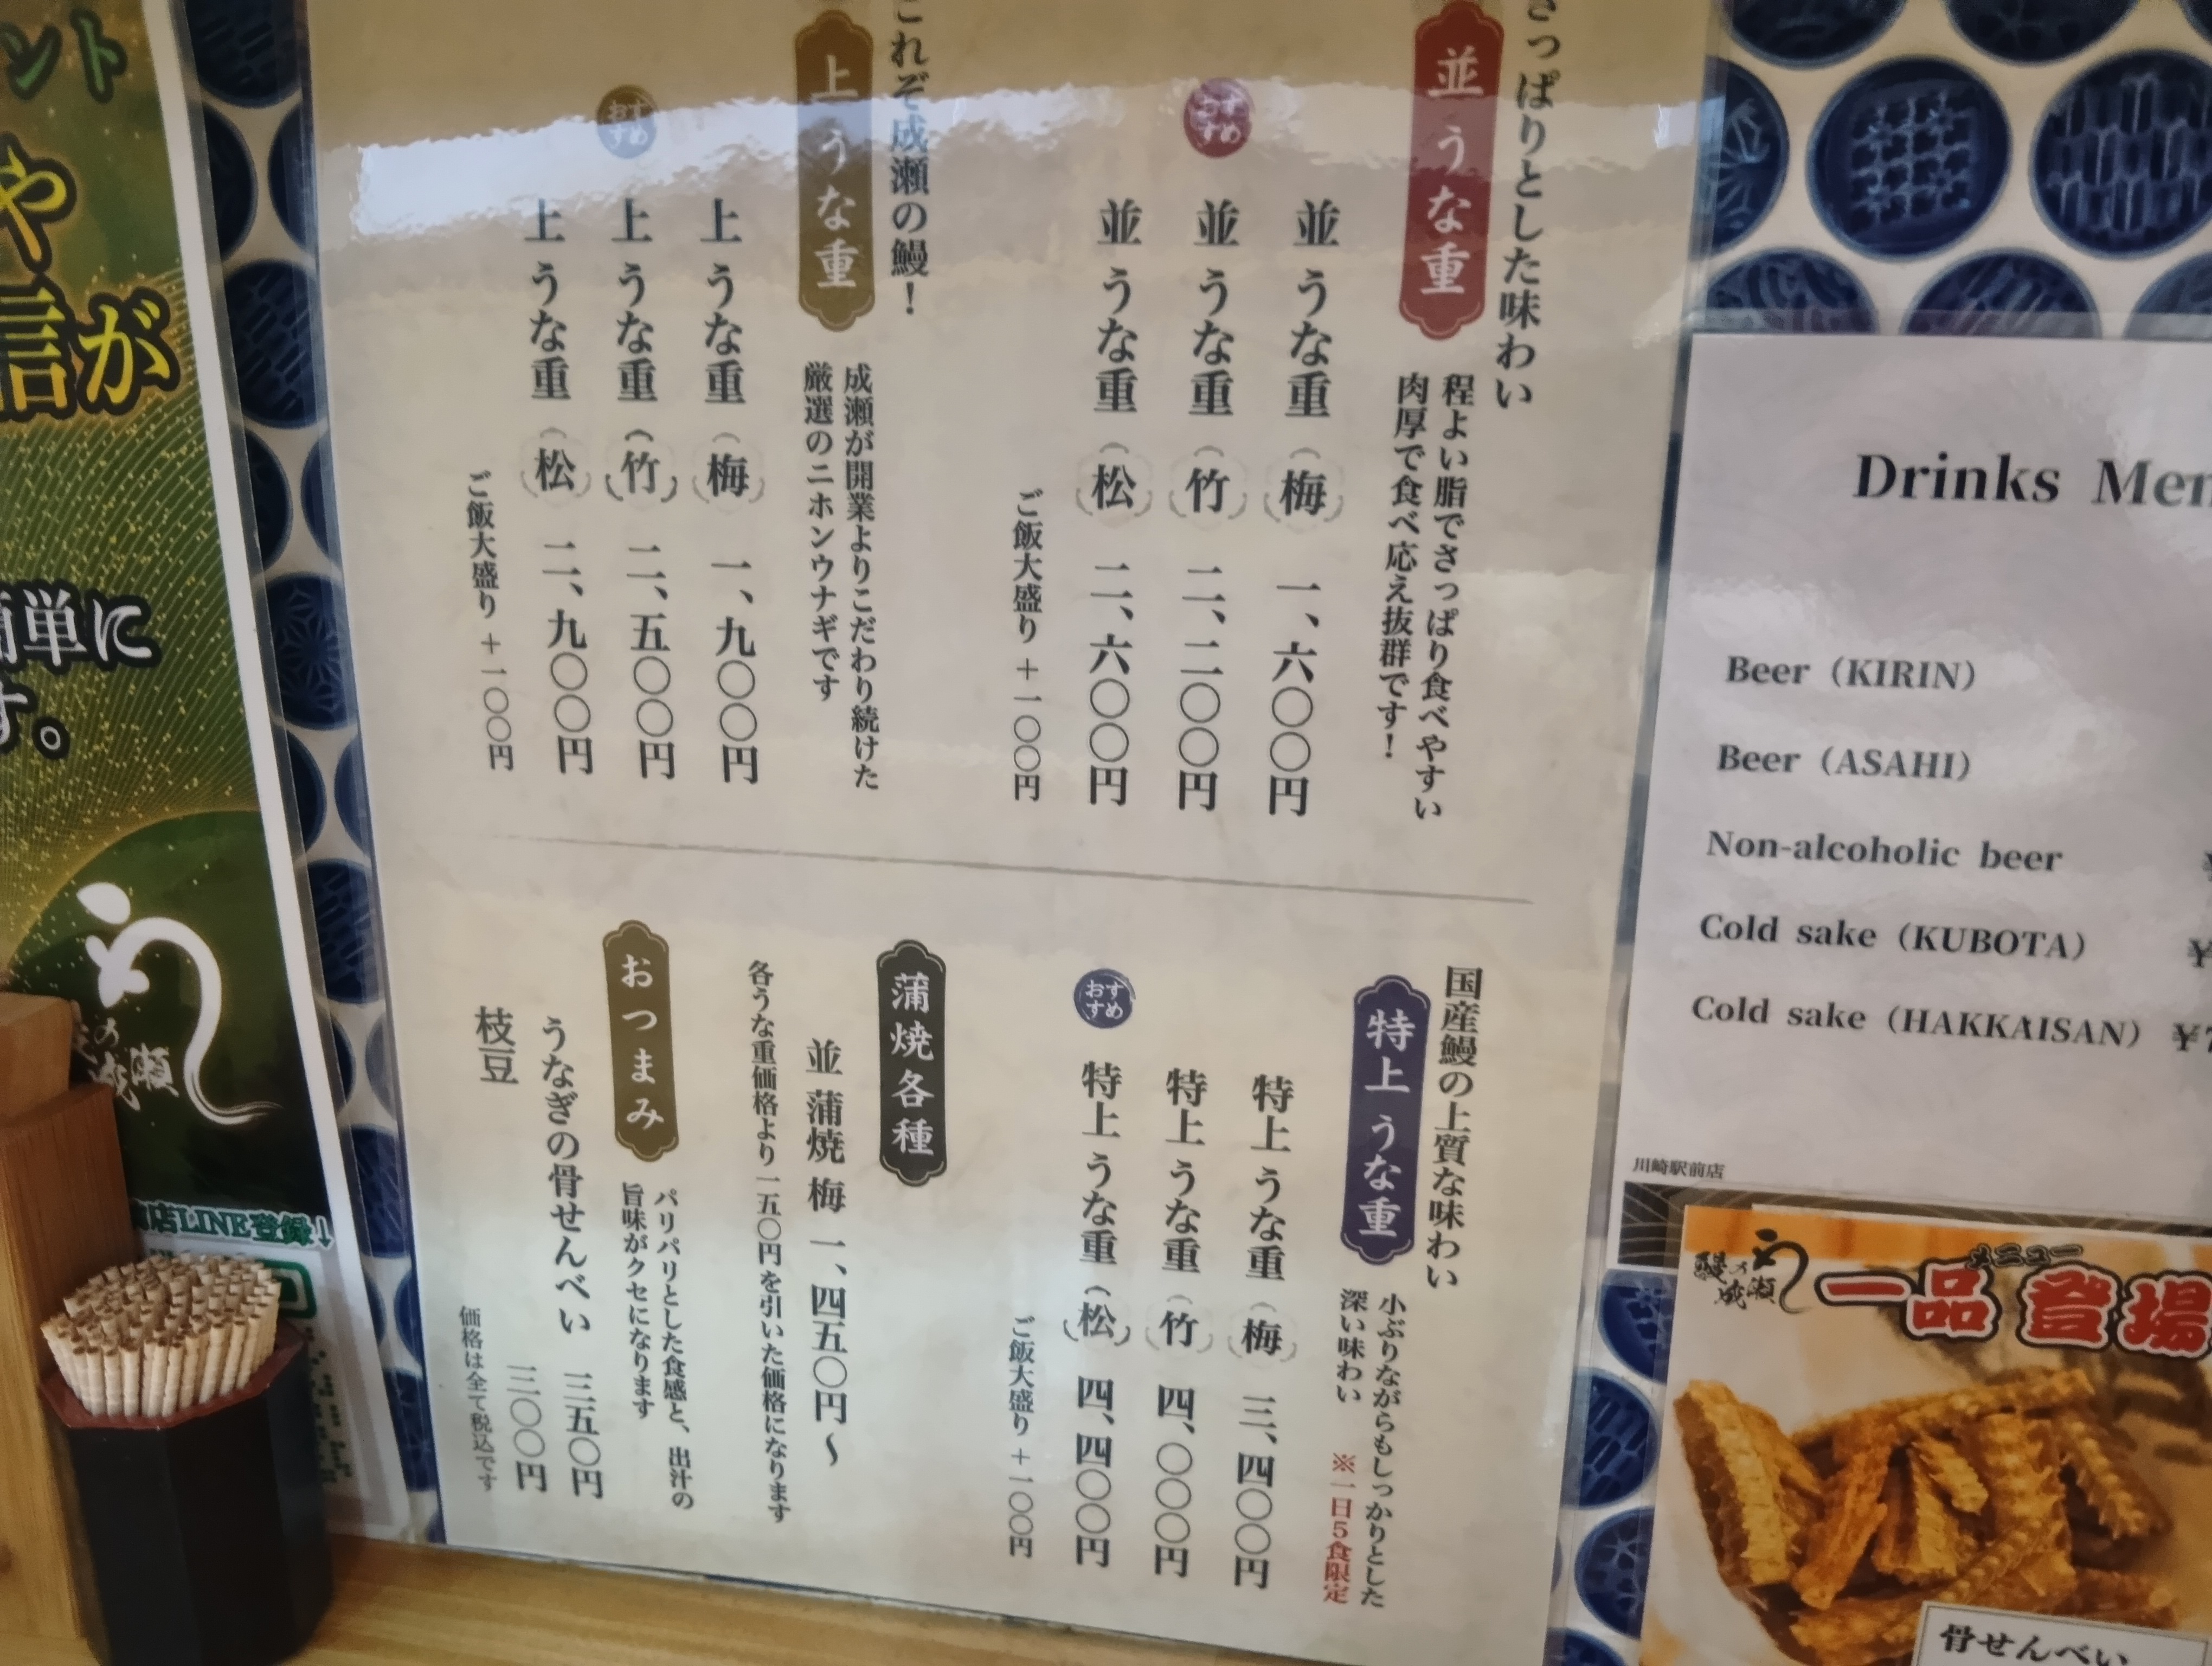 さっぱりとした味わい
並うな重
程よい脂でさっぱり食べやすい
肉厚で食べ応え抜群です！
並うな重（梅）一、六〇〇円
おすすめ
並うな重（竹）二、二〇〇円
並うな重（松）二、六〇〇円
ご飯大盛り＋一〇〇円
これぞ成瀬の鰻！
上うな重
成瀬が開業よりこだわり続けた
厳選のニホンウナギです
上うな重（梅）一、九〇〇円
おすすめ
上うな重（竹）二、五〇〇円
上うな重（松）二、九〇〇円
ご飯大盛り＋一〇〇円
国産鰻の上質な味わい
特上うな重
小ぶりながらもしっかりとした
深い味わい
※一日5食限定
特上うな重（梅）三、四〇〇円
特上うな重（竹）四、〇〇〇円
おすすめ
特上うな重（松）四、四〇〇円
ご飯大盛り＋一〇〇円
蒲焼各種
並 蒲焼 梅 一、四五〇円〜
各うな重価格より一五〇円を引いた価格になります
おつまみ
パリパリとした食感と、出汁の
旨味がクセになります
うなぎの骨せんべい 三五〇円
枝豆 三〇〇円
価格は全て税込です
ント
や
信が
簡単に
す。
店LINE登録↓
Drinks Men
Beer（KIRIN）
Beer（ASAHI）
Non-alcoholic beer ¥
Cold sake（KUBOTA） ¥
Cold sake（HAKKAISAN） ¥
川崎駅前店
鰻の成瀬
メニュー
一品 登場
骨せんべい